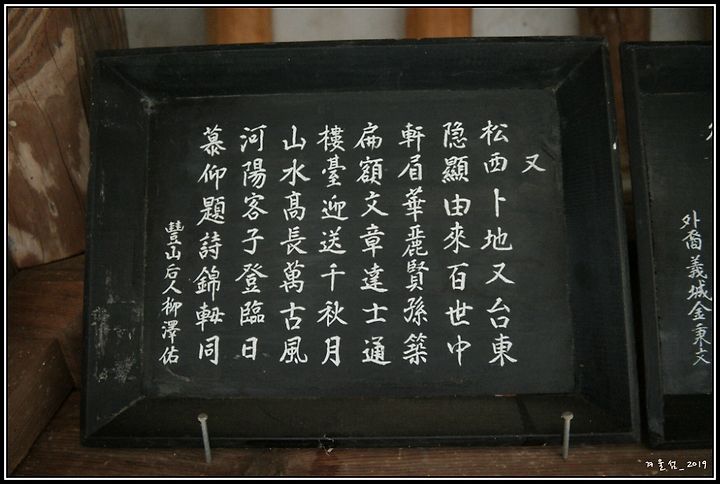 又
松西卜地又台東
隐顯由來百世中
軒眉華麗賢孫築
扁額文章達士通
樓臺迎送千秋月
山水高長萬古風
河陽客子登臨日
慕仰題詩錦同
豐山后人柳澤佑
外裔義城金秉文
겨울섬_2019